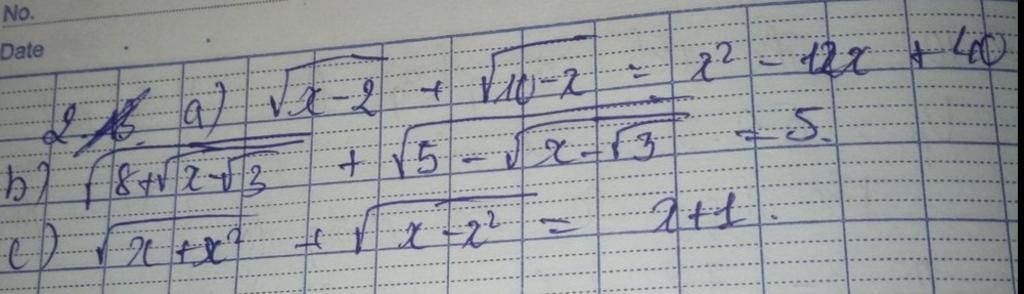 No.
Date
2. a) √(x-2) + √(10-x) = x² - 12x + 40
b) √(8+√(x-√3)) + √(5-√(x-√3)) = 5.
c) √(x+x²) + √(x-x²) = x+1.